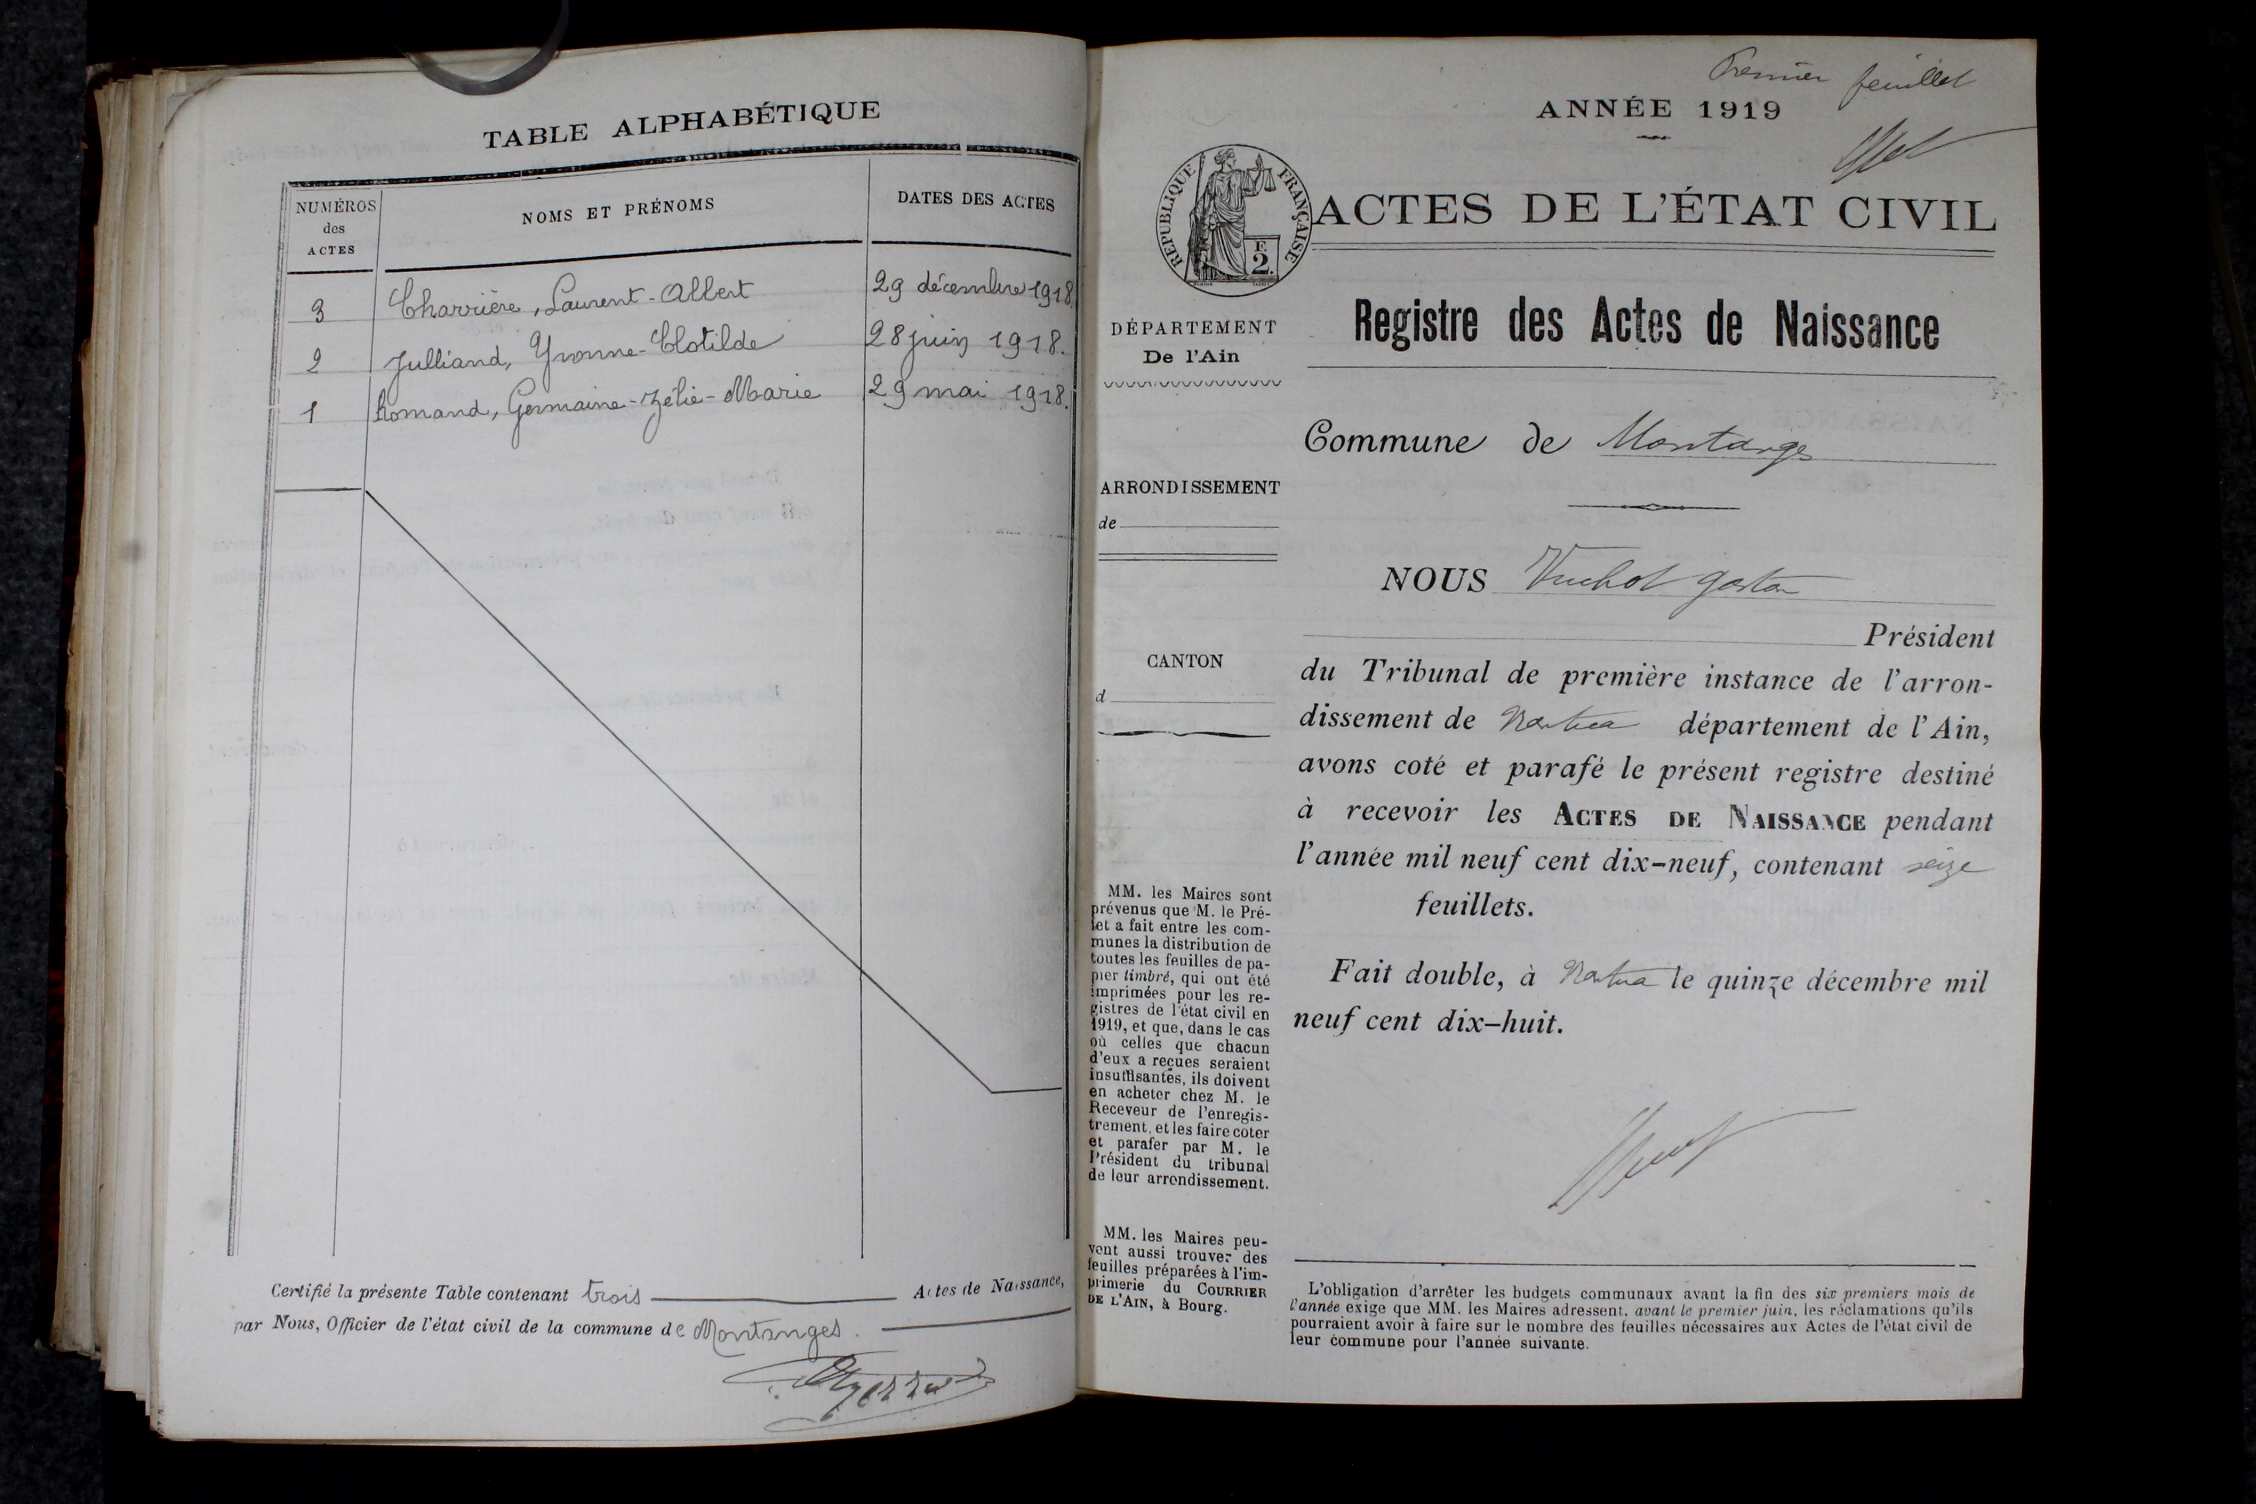 TABLE ALPHABÉTIQUE
NUMÉROS des ACTES
NOMS ET PRÉNOMS
DATES DES ACTES
3 Charrière, Laurent-Albert 29 décembre 1918.
2 Julliand, Yvonne-Clotilde 28 juin 1918.
1 Romand, Germaine-Zélie-Marie 29 mai 1918.
Certifié la présente Table contenant trois Actes de Naissance,
par Nous, Officier de l'état civil de la commune de Montanges.
Premier feuillet
ANNÉE 1919
RÉPUBLIQUE FRANÇAISE
F.
2.
ACTES DE L'ÉTAT CIVIL
DÉPARTEMENT
De l'Ain
Registre des Actes de Naissance
Commune de Montanges
ARRONDISSEMENT
de
NOUS Vuchot Gaston
Président
CANTON
d
du Tribunal de première instance de l'arron-
dissement de Nantua département de l'Ain,
avons coté et parafé le présent registre destiné
à recevoir les ACTES DE NAISSANCE pendant
l'année mil neuf cent dix-neuf, contenant seize
feuillets.
Fait double, à Nantua le quinze décembre mil
neuf cent dix-huit.
MM. les Maires sont
prévenus que M. le Pré-
fet a fait entre les com-
munes la distribution de
toutes les feuilles de pa-
pier timbré, qui ont été
imprimées pour les re-
gistres de l'état civil en
1919, et que, dans le cas
où celles que chacun
d'eux a reçues seraient
insuffisantes, ils doivent
en acheter chez M. le
Receveur de l'enregis-
trement, et les faire coter
et parafer par M. le
Président du tribunal
de leur arrondissement.
MM. les Maires peu-
vent aussi trouver des
feuilles préparées à l'im-
primerie du COURRIER
DE L'AIN, à Bourg.
L'obligation d'arrêter les budgets communaux avant la fin des six premiers mois de
l'année exige que MM. les Maires adressent, avant le premier juin, les réclamations qu'ils
pourraient avoir à faire sur le nombre des feuilles nécessaires aux Actes de l'état civil de
leur commune pour l'année suivante.